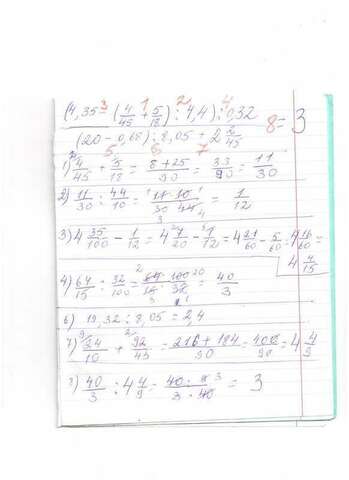 (4,35 - (4/45 + 5/18) : 4,4) : 0,32
(20 - 0,68) : 8,05 + 2 2/45
8 = 3
1) 4/45 + 5/18 = 8+25/90 = 33/90 = 11/30
2) 11/30 : 44/10 = 11·10/30·44 = 1/12
3) 4 35/100 - 1/12 = 4 7/20 - 1/12 = 4 21/60 - 5/60 = 4 16/60 =
4 4/15
4) 64/15 : 32/100 = 64·100/15·32 = 40/3
6) 19,32 : 8,05 = 2,4
7) 24/10 + 92/45 = 216+184/90 = 400/90 = 4 4/9
8) 40/3 : 4 4/9 = 40·9/3·40 = 3